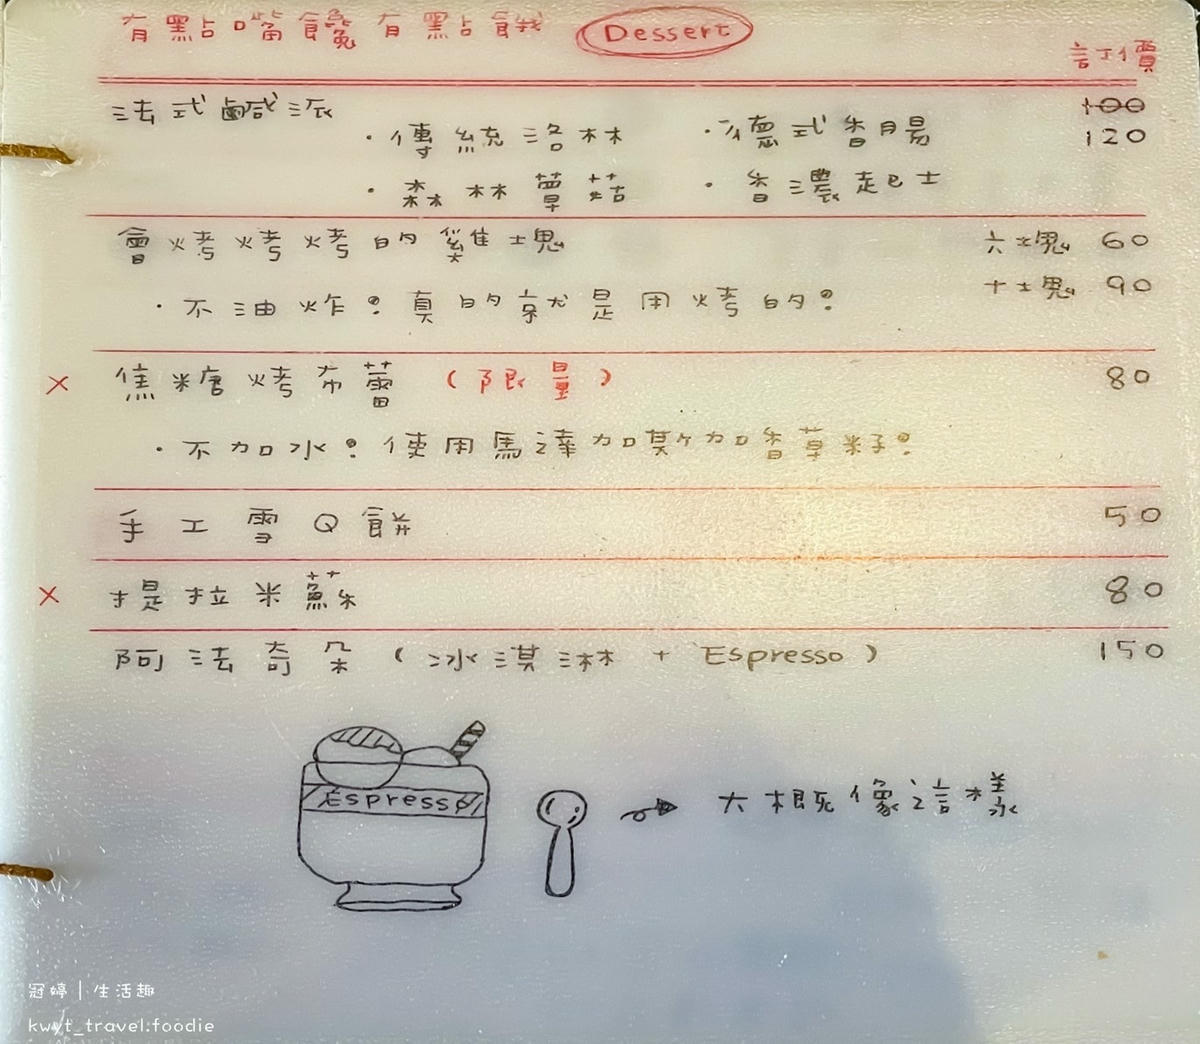 有點嘴饞有點餓 Dessert
訂價
法式鹹派 100
・傳統洛林 ・德式香腸 120
・森林蕈菇 ・香濃起士
會烤烤烤的雞塊 六塊 60
十塊 90
・不油炸!真的就是用烤的!
× 焦糖烤布蕾 (限量) 80
・不加水!使用馬達加斯加香草籽!
手工雪Q餅 50
× 提拉米蘇 80
阿法奇朵 (冰淇淋 + Espresso) 150
Espresso
大概像這樣
冠婷|生活趣
kwyt_travel.foodie